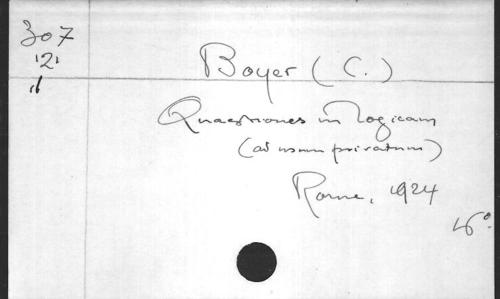 307
121
Boyer (C.)
Quaestiones in logicam
(ad usum privatum)
Rome, 1924